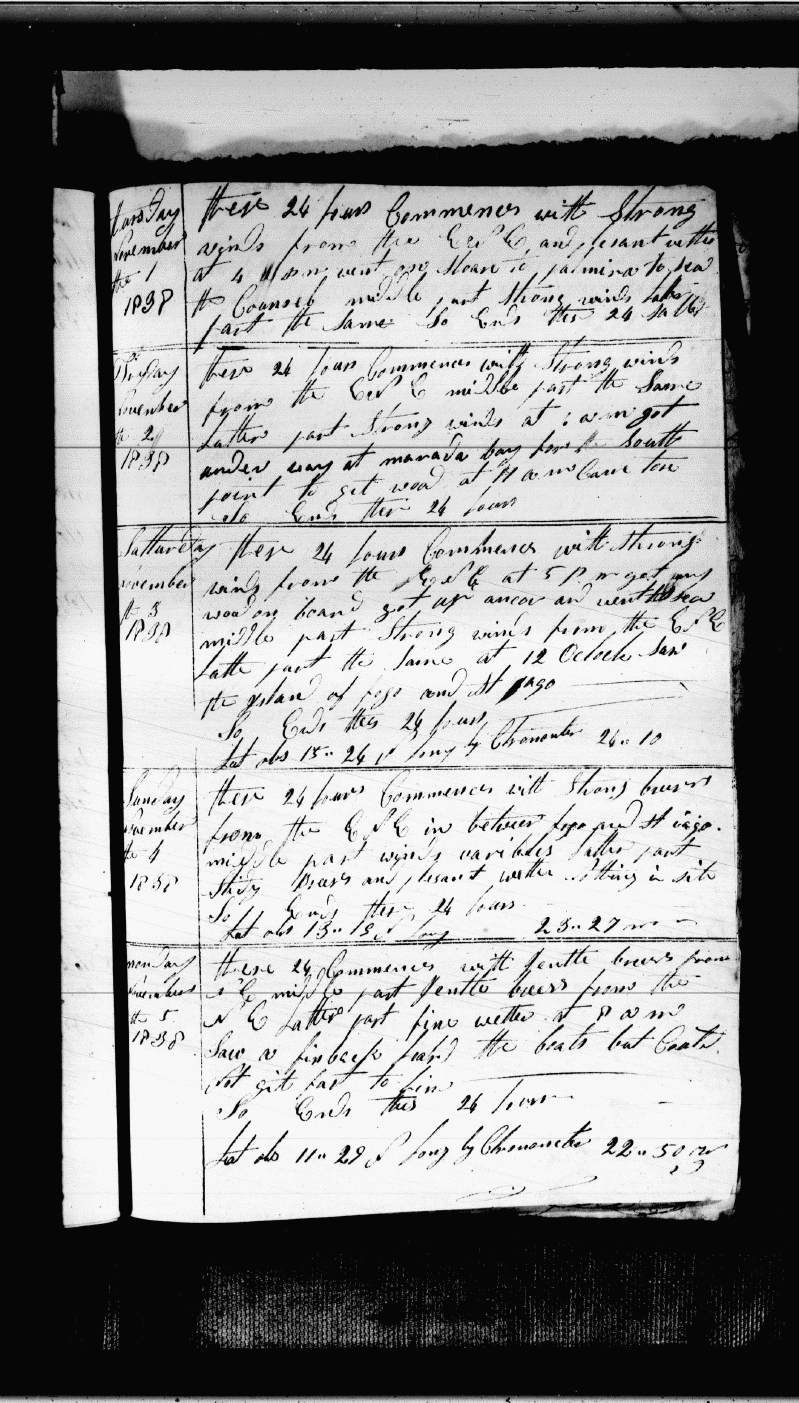 thursday
November
the 1
1838
these 24 hours Commences with Strong
winds from the E N E and plesant wether
at 4 went on Shoar to see
the Counsel middle part Strong winds later
part the Same So Ends thes 24
Fryday
November
the 2
1838
these 24 hours Commences with Strong winds
from the E N E middle part the Same
Latter part Strong winds at a m got
under way at manada bay for the South
point to get wood at a m Came
So Ends thes 24 hours
Satturday
November
the 3
1838
thes 24 hours Commences with Strong
winds from the E N E at 5 P m got my
wood on board got up ancor and went to sea
middle part Strong winds from the E N E
Latte part the Same at 12 Oclock Saw
the ysland of fogo and St jago
So Ends thes 24 hours
Lat obs 15 " 24 N Long by Chronomter 24 " 10
Sunday
November
the 4
1838
these 24 hours Commences with Strong breses
from the E N E in between fogo and St iago
middle part winds variables Latter part
Stidy breses and plesant wether Nothing in site
So Ends thes 24 hours
Lat obs 13 " 13 N Long 23 " 27 w
monday
November
the 5
1838
these 24 Commences with Jentle breses from
N E middle part Jentle breses from the
N E Latter part fine wether at 8 a m
Saw a finback the boats but Coold
Not git fast to him
So Ends thes 24 hours
Lat obs 11 " 29 N Long by Chronometer 22 " 50 w